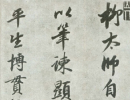 柳太師自
以筆諫顯
平生博貫